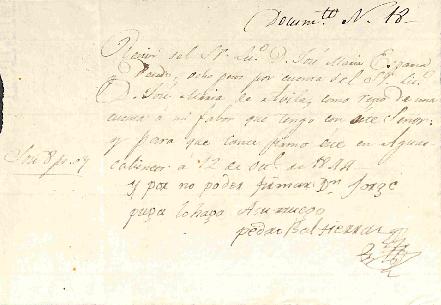 Documto. N. 18.
Recivi del Sr. Lic. D. José Maria Esparza
ocho pesos por cuenta del Sr. Lic.
D. José Maria de Avila, como resto de una
cuenta a mi fabor que tengo con este Señor:
y para que conste firmo este en Aguas
calientes á 12 de Oct. de 1844
Son 8 ps.
y por no poder firmar Dn. Jorge
lo hago Asuruego
Pedro Beltierra